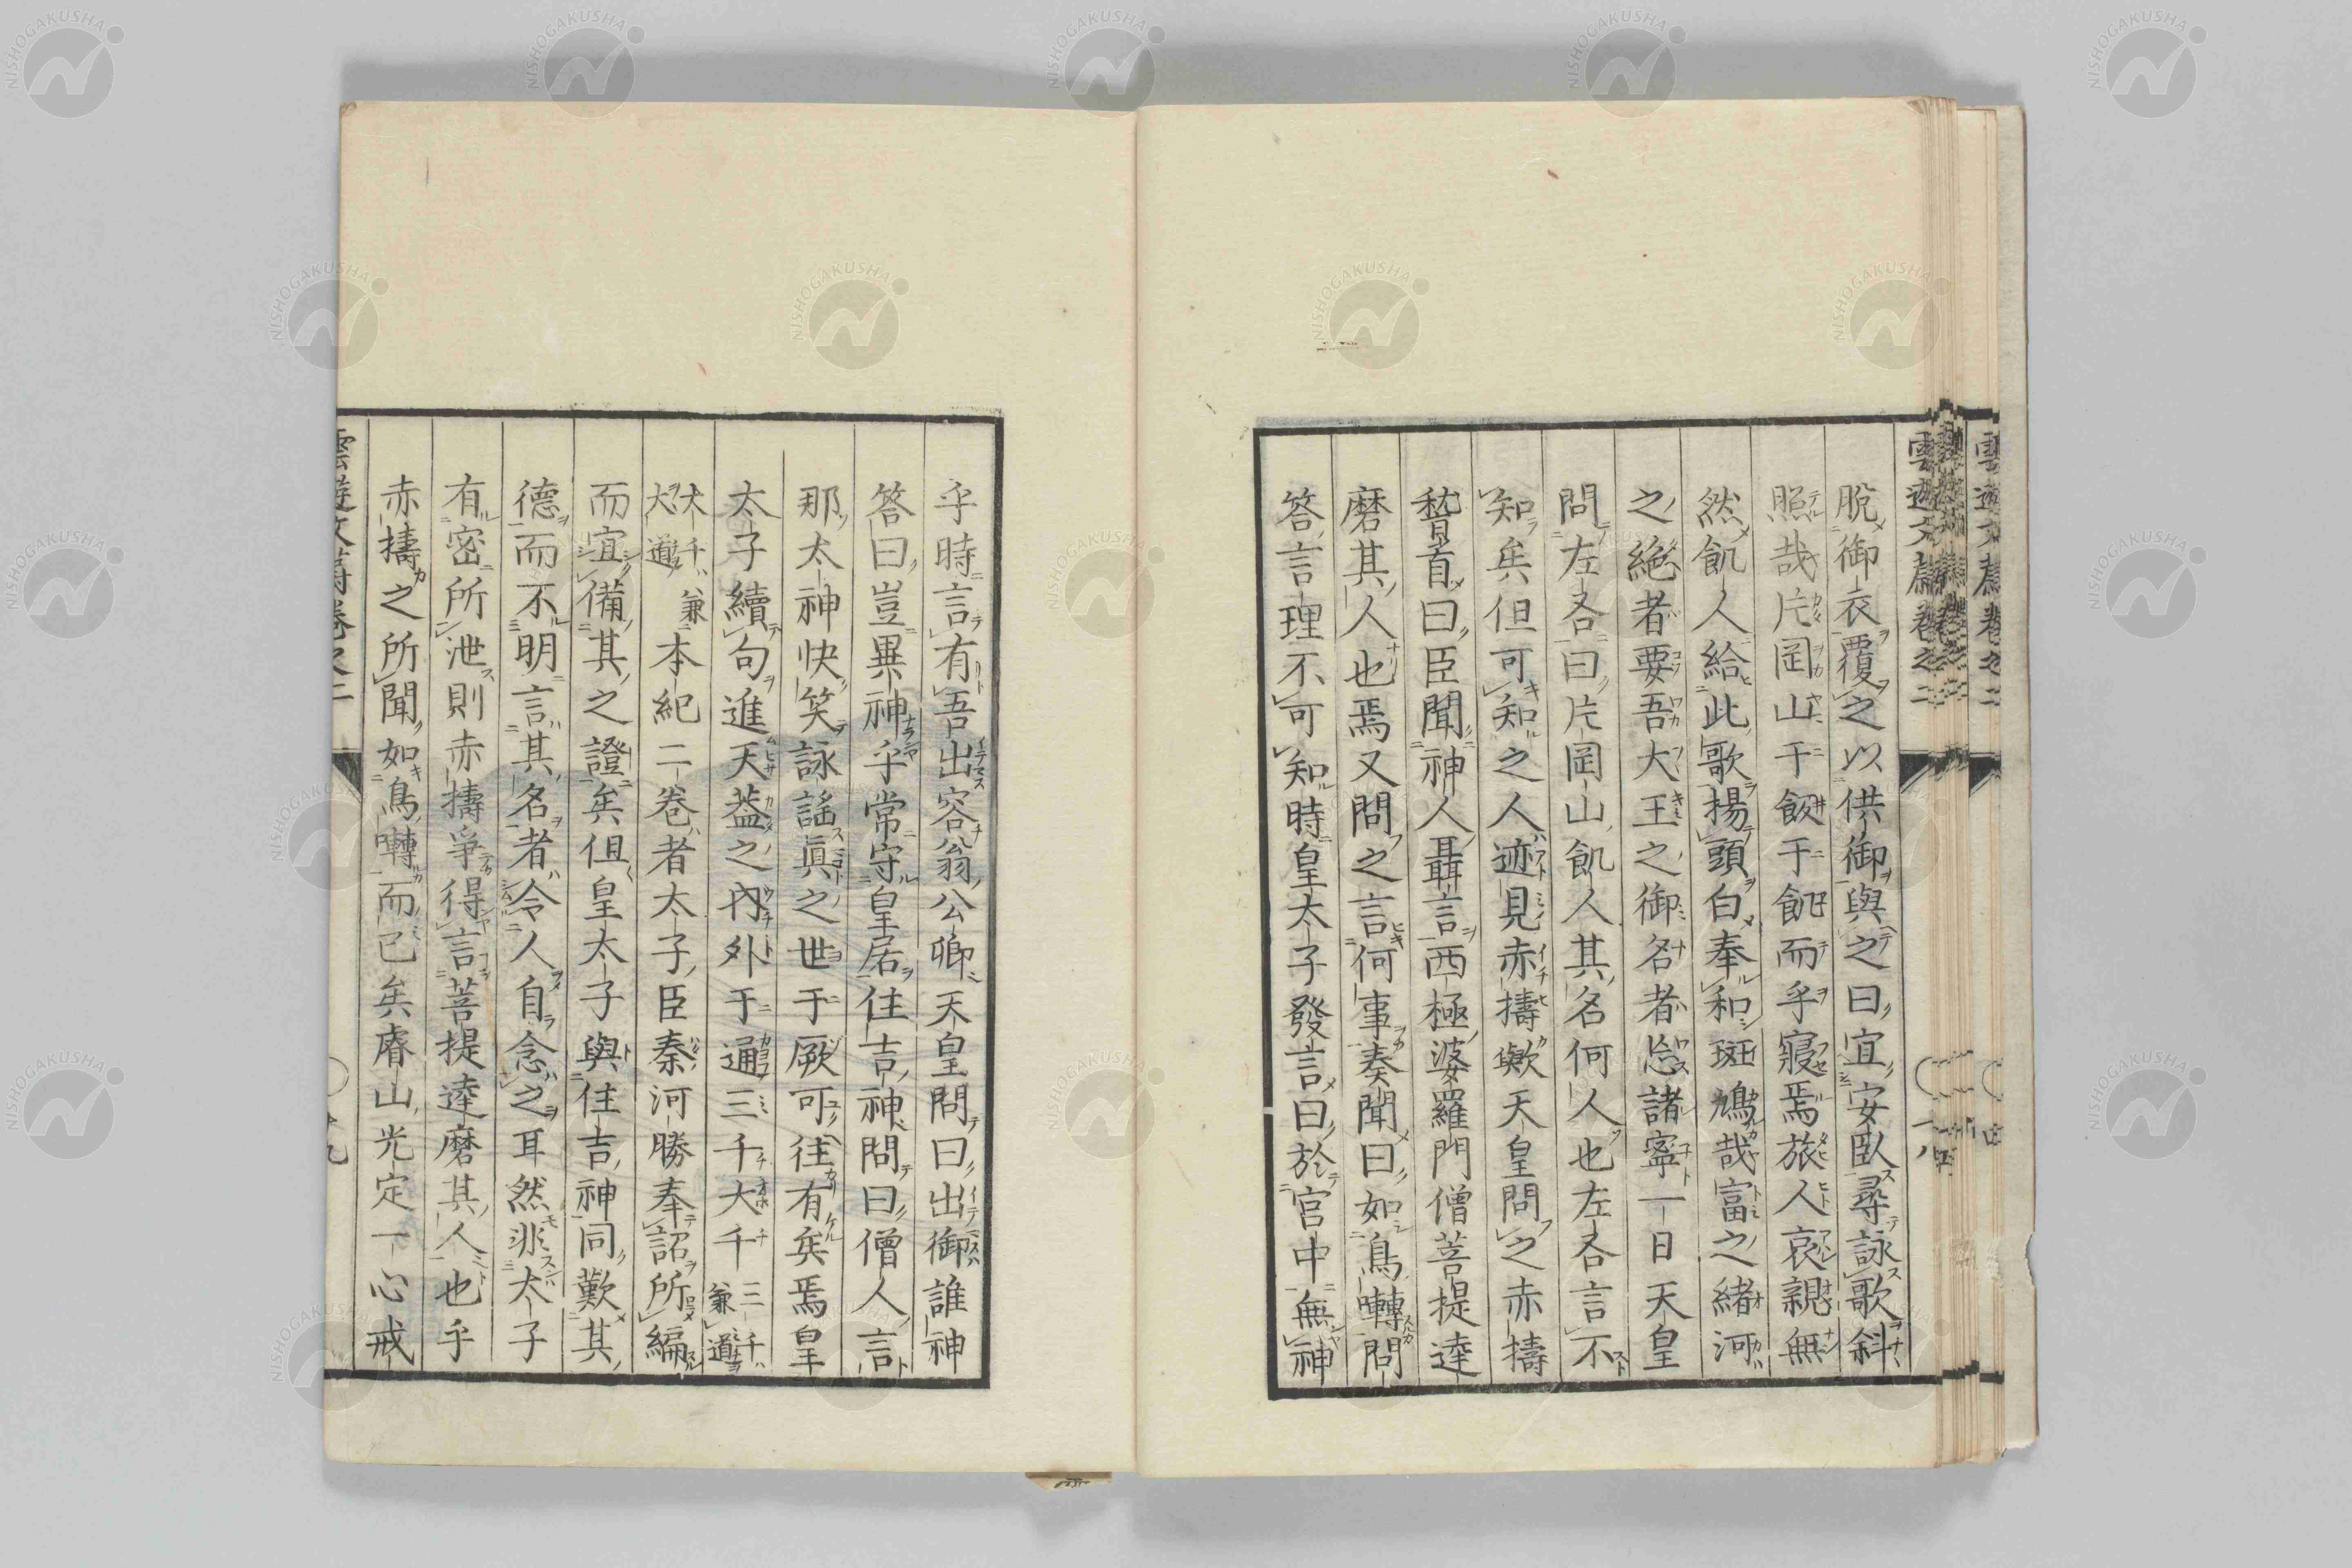 脫御衣覆之以供御與之曰宜安臥尋詠歌斜
照哉片岡山于飯于飢而乎寢焉旅人哀親無
然飢人給此歌揚頭白奉和斑鳩哉富之緒河
之絶者要吾大王之御名者忩諸寧一日天皇
問左右曰片岡山飢人其名何人也左右言不
知矣但可知之人迹見赤擣歟天皇問之赤擣
稽首曰臣聞神人聶言西極婆羅門僧菩提達
磨其人也焉又問之言何事奏聞曰如鳥囀問
答言理不可知時皇太子發言曰於宮中無神
乎時言有吾出容翁公卿天皇問曰出御誰神
答曰豈異神乎常守皇居住吉神問曰僧人言
那太神快笑詠謠眞之世于厥可往有矣焉皇
太子續句進天葢之內外于通三千大千三千兼道
大千兼大道本紀二卷者太子臣秦河勝奉詔所編
而宜備其之證矣但皇太子與住吉神同歎其
德而不明言其名者令人自念之耳然非太子
有密所泄則赤擣爭得言菩提達磨其人也乎
赤擣之所聞如鳥囀而已矣睿山光定一心戒
雲遊文蔚卷之二